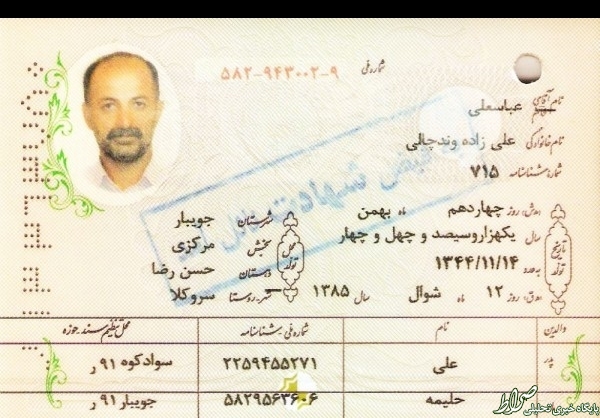 شماره ملی ۵۸۲-۹۴۳۰۰۲-۹
نام آقای عباسعلی
نام خانوادگی علی زاده وندچالی
شماره شناسنامه ۷۱۵
ه‍.ش: روز چهاردهم ماه بهمن
سال یکهزاروسیصد و چهل و چهار
به عدد ۱۳۴۴/۱۱/۱۴
ه‍.ق: روز ۱۲ ماه شوال سال ۱۳۸۵
تاریخ تولد
محل تولد
شهرستان جویبار
بخش مرکزی
دهستان حسن رضا
شهر-روستا سروکلا
شهادت
والدین نام شماره ملی-شناسنامه محل تنظیم سند-حوزه
پدر علی ۲۲۵۹۴۵۵۲۷۱ سوادکوه ۹۱ ر
حلیمه ۵۸۲۹۵۶۳۶۰۶ جویبار ۹۱ ر
صراط
پایگاه خبری تحلیلی